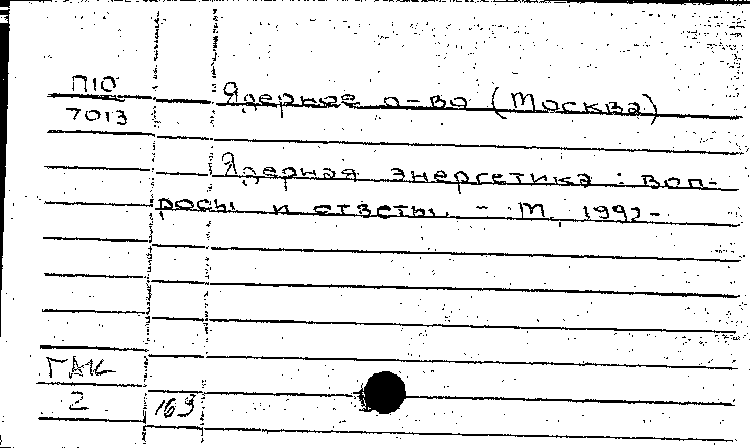 П10
7013
Ядерное о-во (Москва)
Ядерная энергетика : Воп-
росы и ответы. - М., 1992-
ГАК
2 169